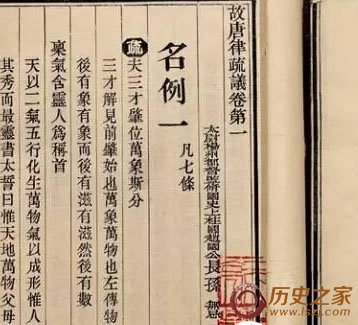 故唐律疏議卷第一
太尉揚州都督監修國史上柱國趙國公長孫無忌
名例一 凡七條
疏夫三才肇位萬象斯分
三才解見前肇始也萬象萬物也左傳物
後有象有象而後有滋有滋然後有數
稟氣含靈人爲稱首
天以二氣五行化生萬物氣以成形惟人
其秀而最靈書太誓曰惟天地萬物父母
历史之家